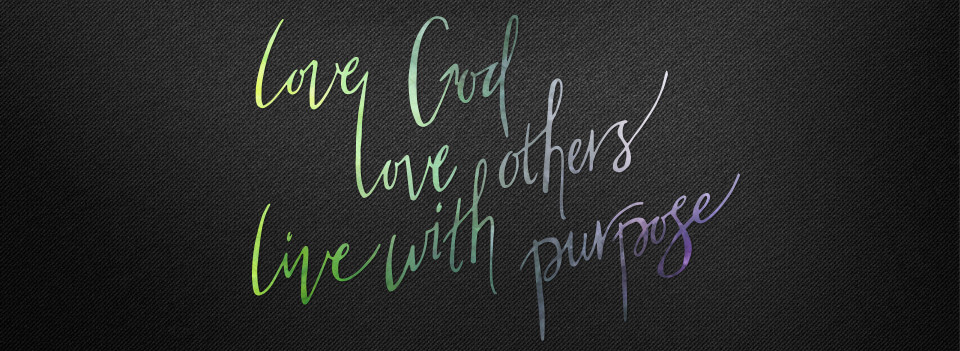 love God
love others
live with purpose